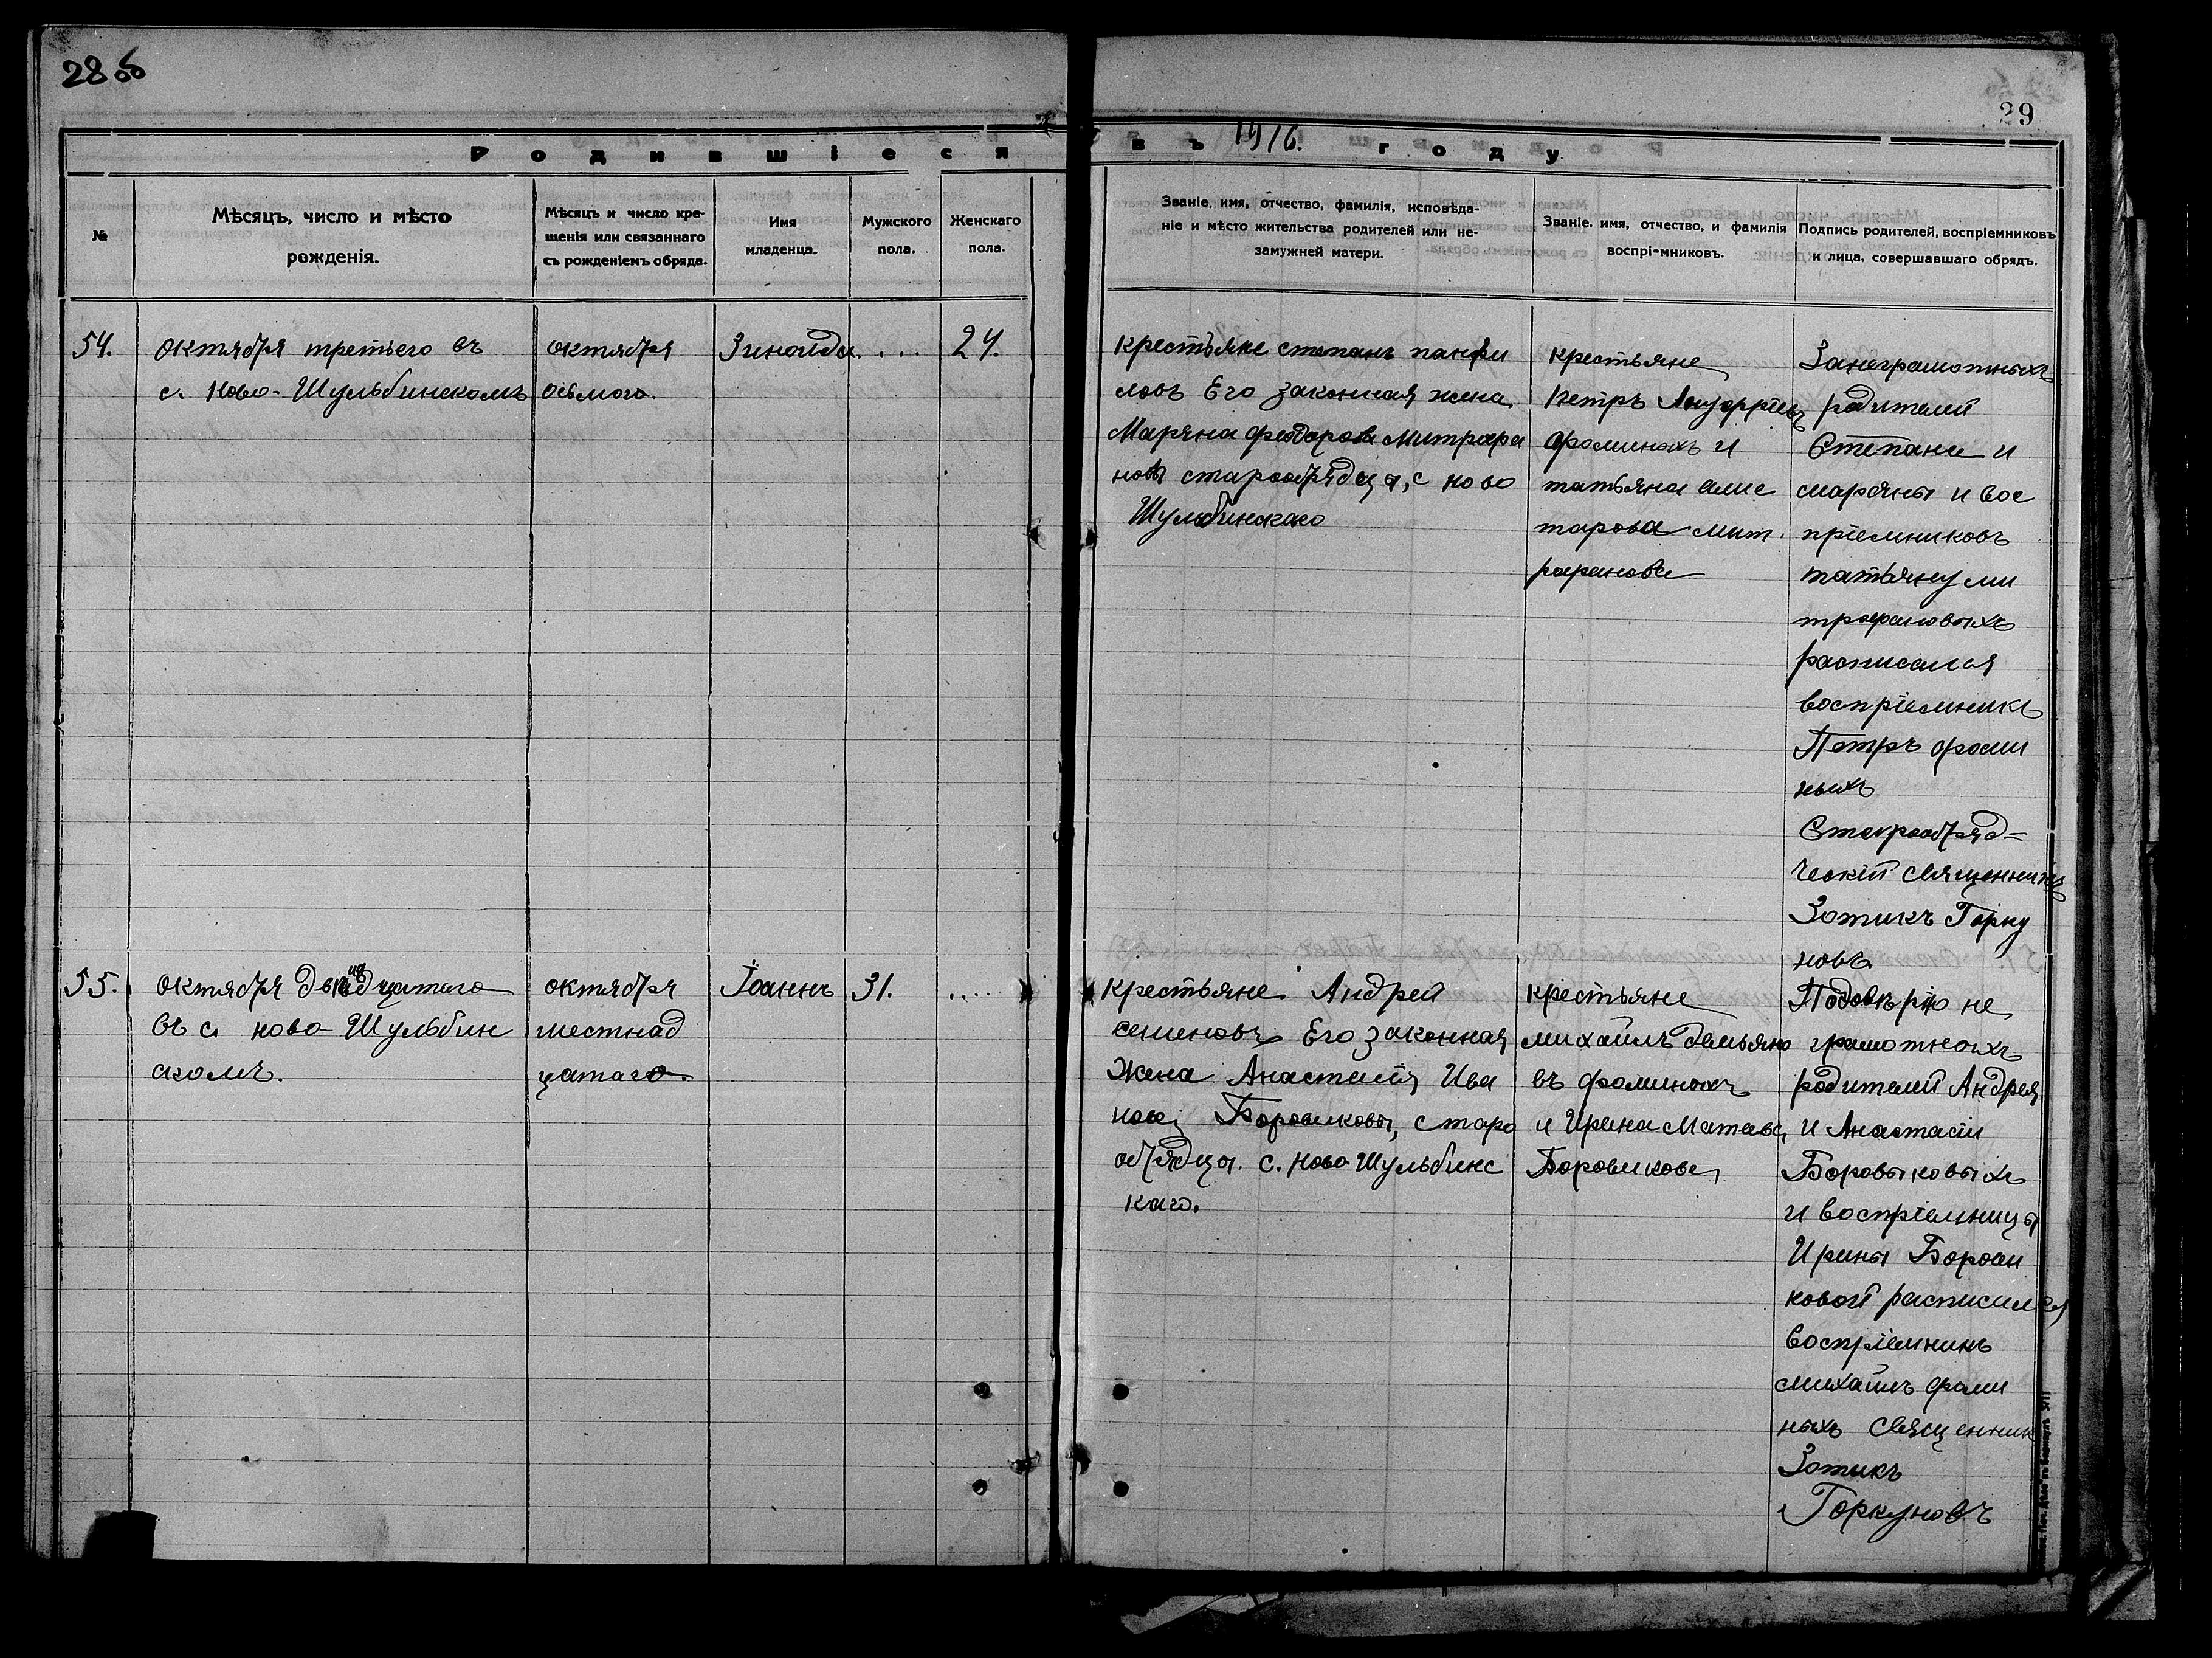 28 об
29
Родившіеся въ 1916. году
№
Мѣсяцъ, число и мѣсто
рожденія.
Мѣсяцъ и число кре-
щенія или связаннаго
съ рожденіемъ обряда.
Имя
младенца.
Мужского
пола.
Женскаго
пола.
Званіе, имя, отчество, фамилія, исповѣда-
ніе и мѣсто жительства родителей или не-
замужней матери.
Званіе, имя, отчество, и фамилія
воспріемниковъ.
Подпись родителей, воспріемниковъ
и лица, совершавшаго обрядъ.
54.
октября третьего въ
с. Ново-Шульбинскомъ
октября
осьмого.
Зиноида.
...
24.
крестьяне степанъ панфи
ловъ Его законная жена
Марѳна феодорова митрофа
новы старообрядцы, с ново
Шульбинскаго
крестьяне
Петръ
фоминыхъ и
татьяна алис
тарова мит.
рофанова
Занеграмотныхъ
родителей
Степана и
марѳны и вос
пріемниковъ
татьяну ми
трофановыхъ
расписался
воспріемникъ
Петръ фоми
ныхъ
Старообряд=
ческій священникъ
Зотикъ Горку
новъ.
55.
октября двѣнадцатаго
въ с. ново-Шульбин
скомъ.
октября
шестнад
цатаго.
Іоаннъ
31.
....
крестьяне Андрей
семеновъ Его законная
Жена Анастасія Ива
нова Боровиковы, старо
обрядцы. с. Ново Шульбинс
каго.
крестьяне
михаилъ демьяно
въ фоминыхъ
и Ирина Матвѣ
Боровикова
Подовѣрію не
грамотныхъ
родителей Андрея
и Анастасіи
Боровыковыхъ
и воспріемницы
Ирины Борови
ковой расписался
воспріемникъ
михаилъ фоми
ныхъ Священникъ
Зотикъ
Горкуновъ